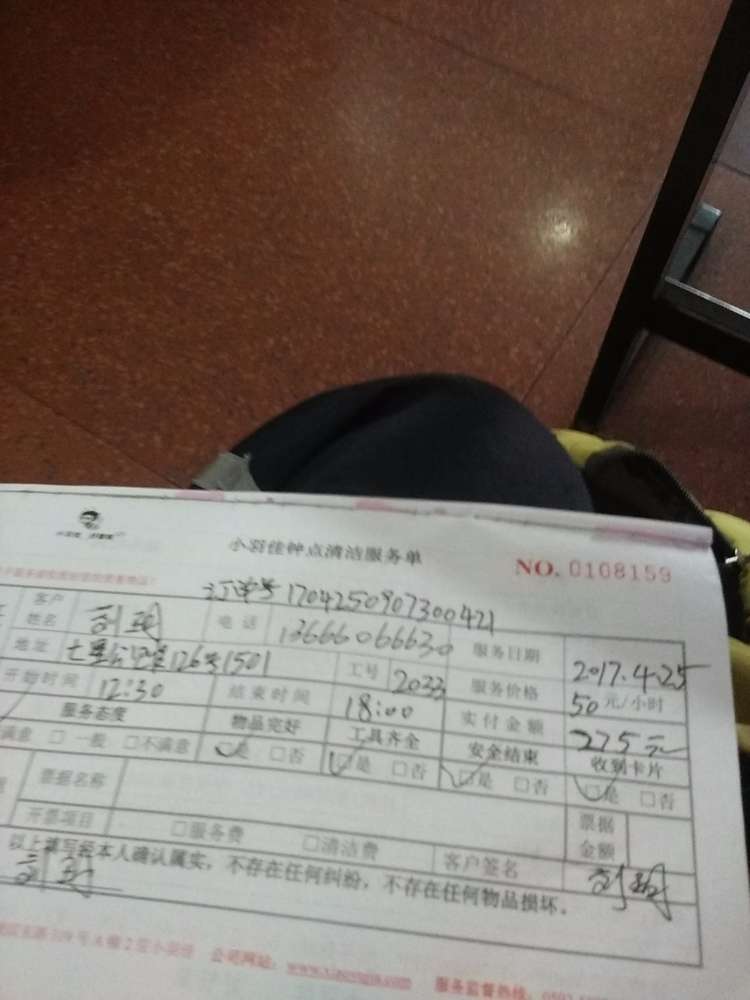 小羽佳钟点清洁服务单 NO. 0108159
订单号 1704250907300421
客户姓名 电话 13666066630 服务日期 2017.4.25
地址 126号1501 工号 2033 服务价格 50元/小时
开始时间 12:30 结束时间 18:00 实付金额 275元
服务态度 物品完好 工具齐全 安全结束 收到卡片
满意 □ 一般 □不满意 □是 □否 □是 □否 □是 □否 □是 □否
票据名称 票据金额
开票项目 □服务费 □清洁费 客户签名
以上填写经本人确认属实,不存在任何纠纷,不存在任何物品损坏。
319号A幢2层小羽佳 公司网址: 服务监督热线: